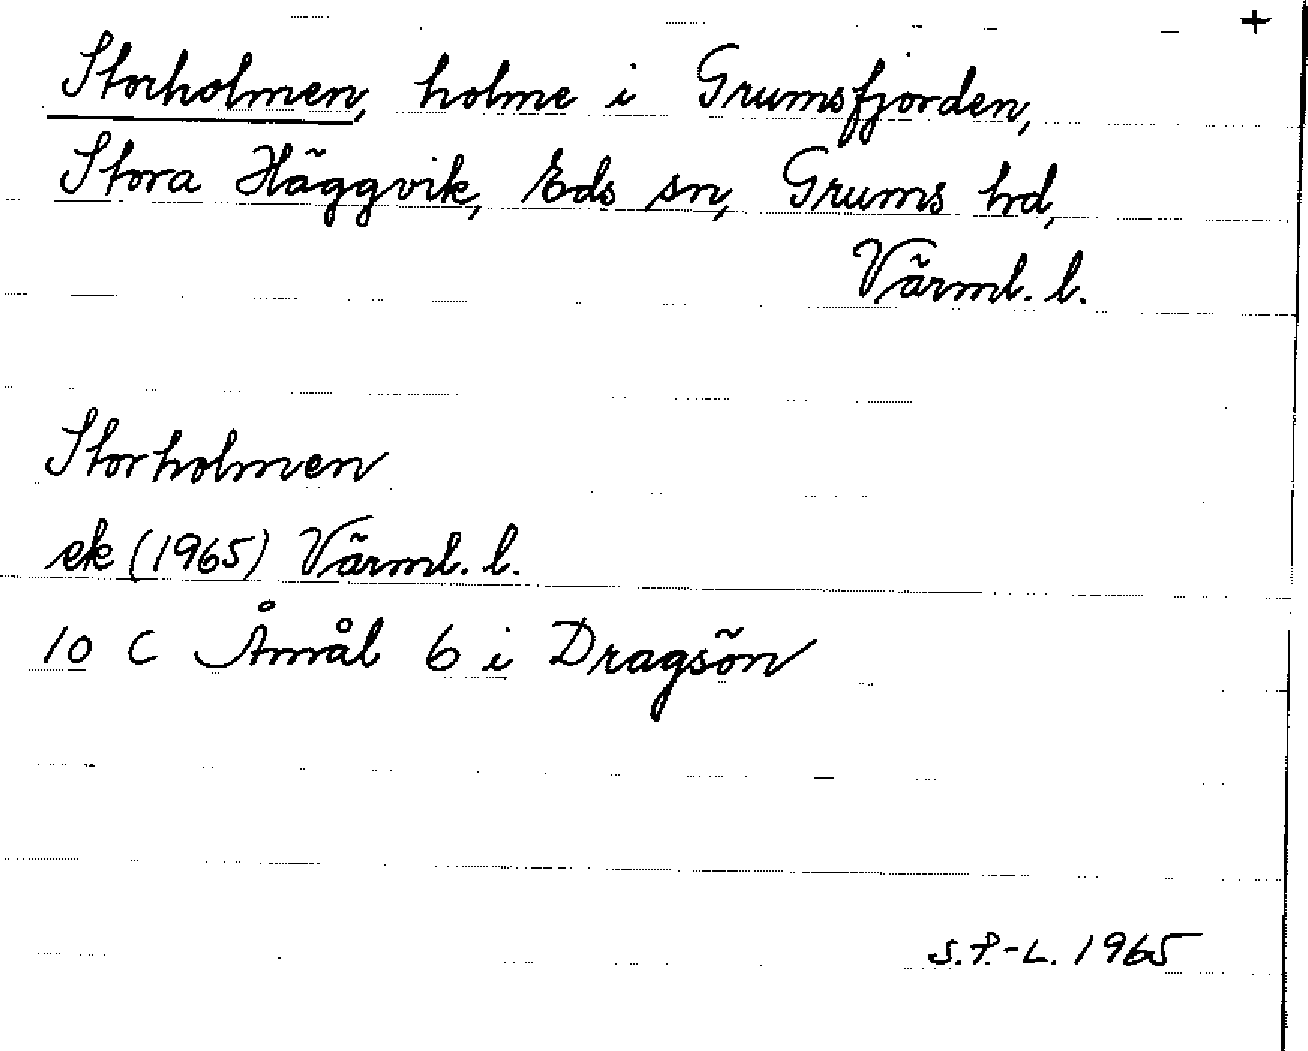 +
Storholmen, holme i Grumsfjorden,
Stora Häggvik, Eds sn, Grums hd,
Värml. l.
Storholmen
ek (1965) Värml. l.
10 C Åmål 6 i Dragsön
S.P.-L. 1965